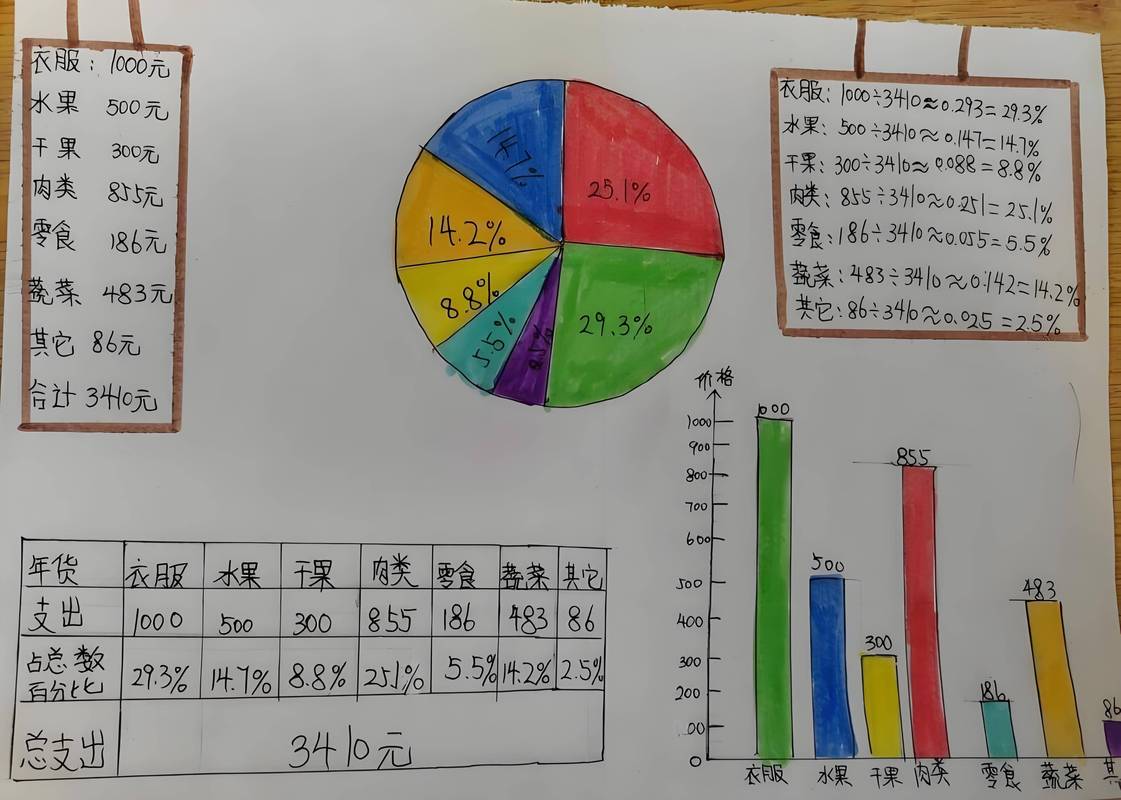 衣服: 1000元
水果 500元
干果 300元
肉类 855元
零食 186元
蔬菜 483元
其它 86元
合计 3410元
14.7%
25.1%
14.2%
8.8%
5.5%
29.3%
衣服: 1000÷3410≈0.293=29.3%
水果: 500÷3410≈0.147=14.7%
干果: 300÷3410≈0.088=8.8%
肉类: 855÷3410≈0.251=25.1%
零食: 186÷3410≈0.055=5.5%
蔬菜: 483÷3410≈0.142=14.2%
其它: 86÷3410≈0.025=2.5%
年货 衣服 水果 干果 肉类 零食 蔬菜 其它
支出 1000 500 300 855 186 483 86
占总数
百分比 29.3% 14.7% 8.8% 25.1% 5.5% 14.2% 2.5%
总支出 3410元
价格
1000
900
800
700
600
500
400
300
200
100
0
1000
500
300
855
186
483
86
衣服 水果 干果 肉类 零食 蔬菜 其